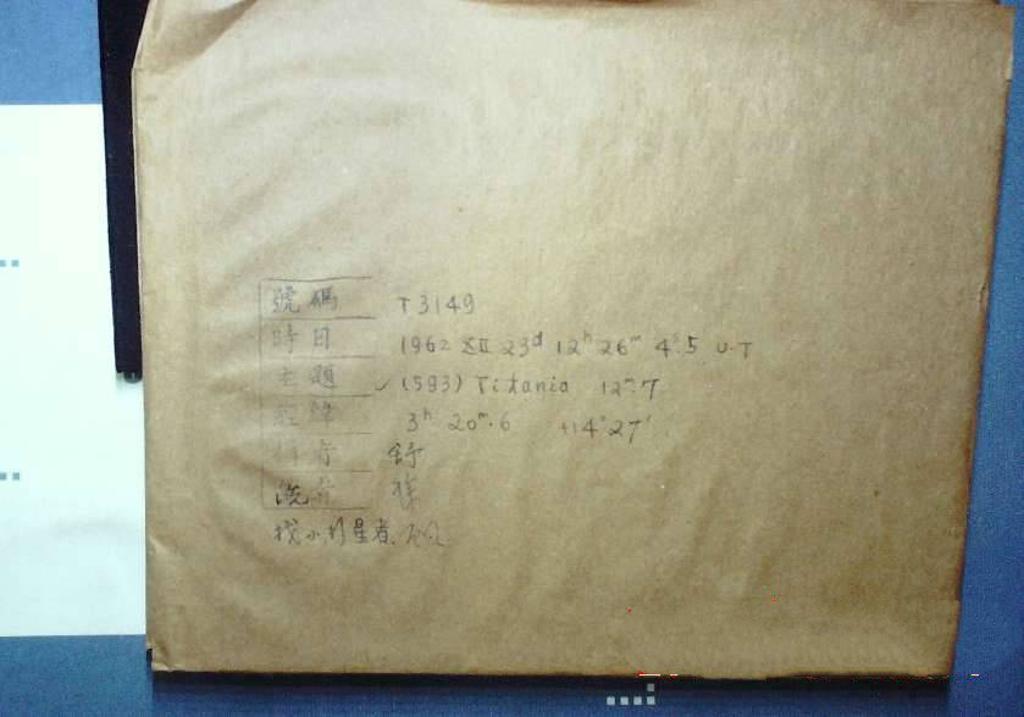 號碼 T3149
時日 1962 XII 23d 12h 26m 4s.5 U.T
主題 ✓(593) Titania 12m.7
經緯 3h 20m.6 +14°27'
舒
洗
找小行星者